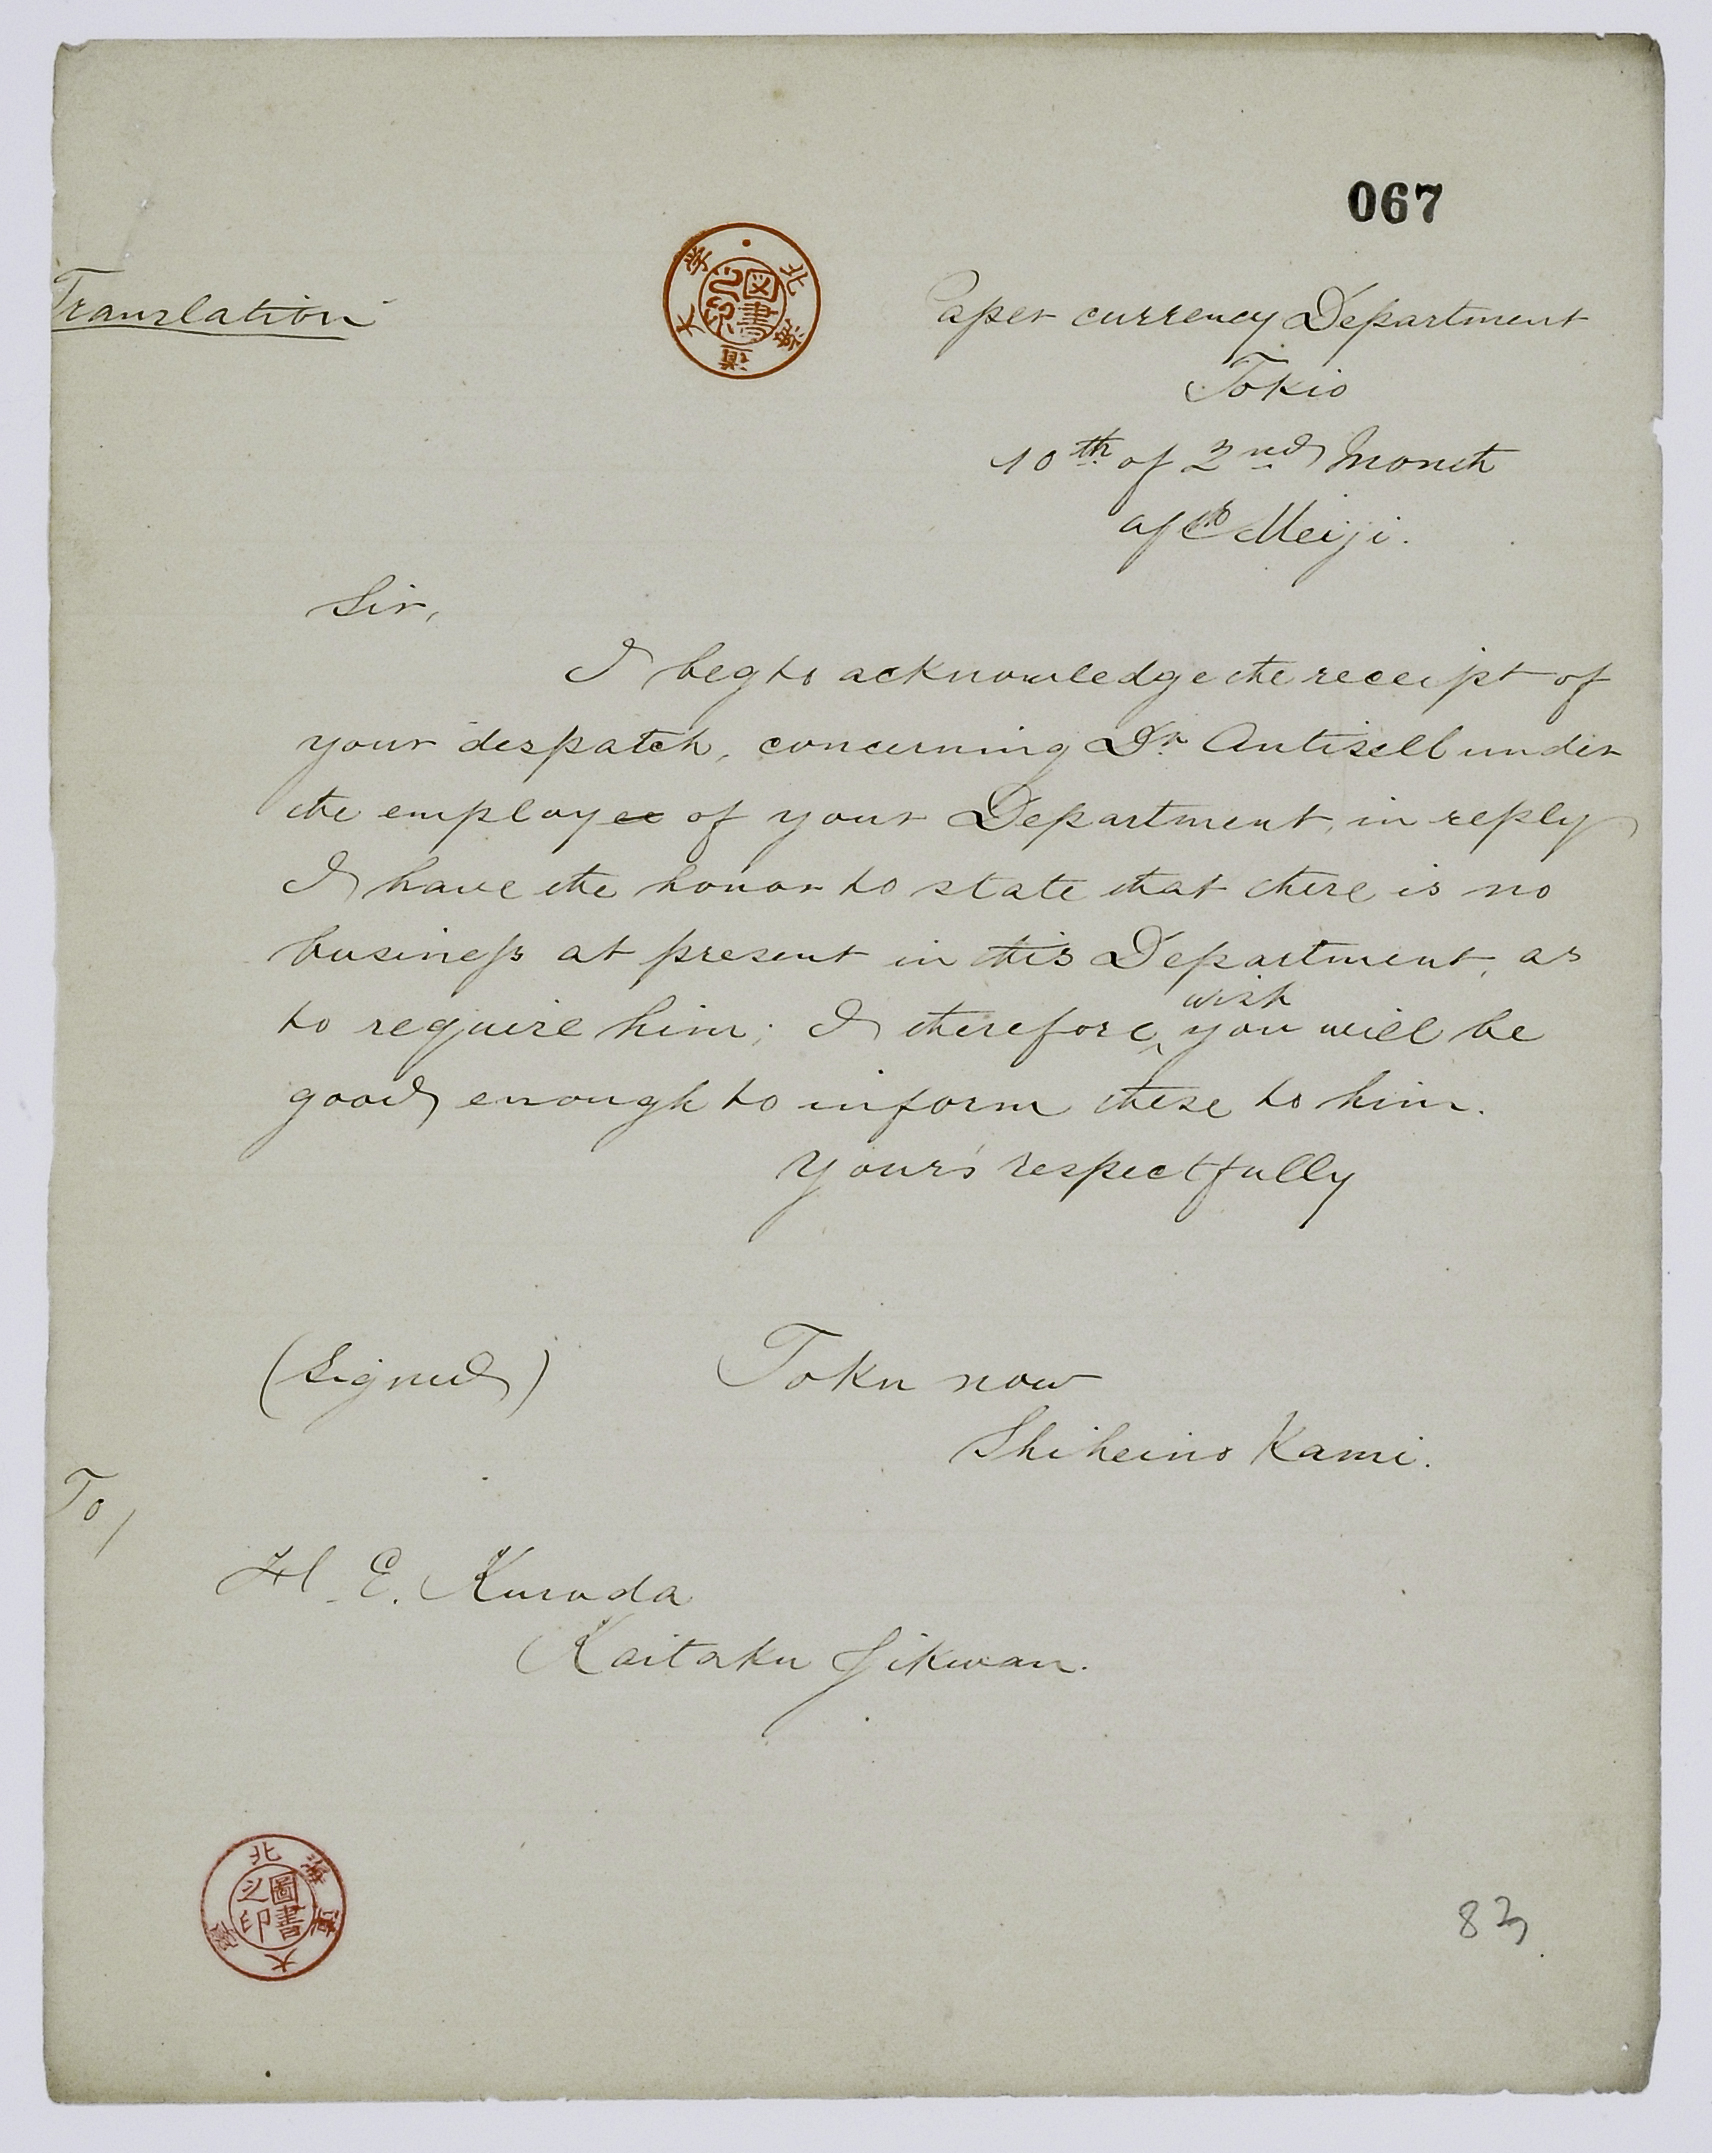 067
Translation
Paper currency Department
Tokio
10th of 2nd Month
of Meiji.
Sir,
I beg to acknowledge the receipt of
your despatch, concerning Dr. Antisell under
the employ of your Department, in reply
I have the honor to state that there is no
business at present in this Department, as
to require him; I therefore wish you will be
good enough to inform these to him.
Your's respectfully
(Signed) Toku now
Shiheino Kami.
To/
H. E. Kuroda
Kaitaku Jikwan.
北海道大学
図書之印
北海道大學
圖書之印
83